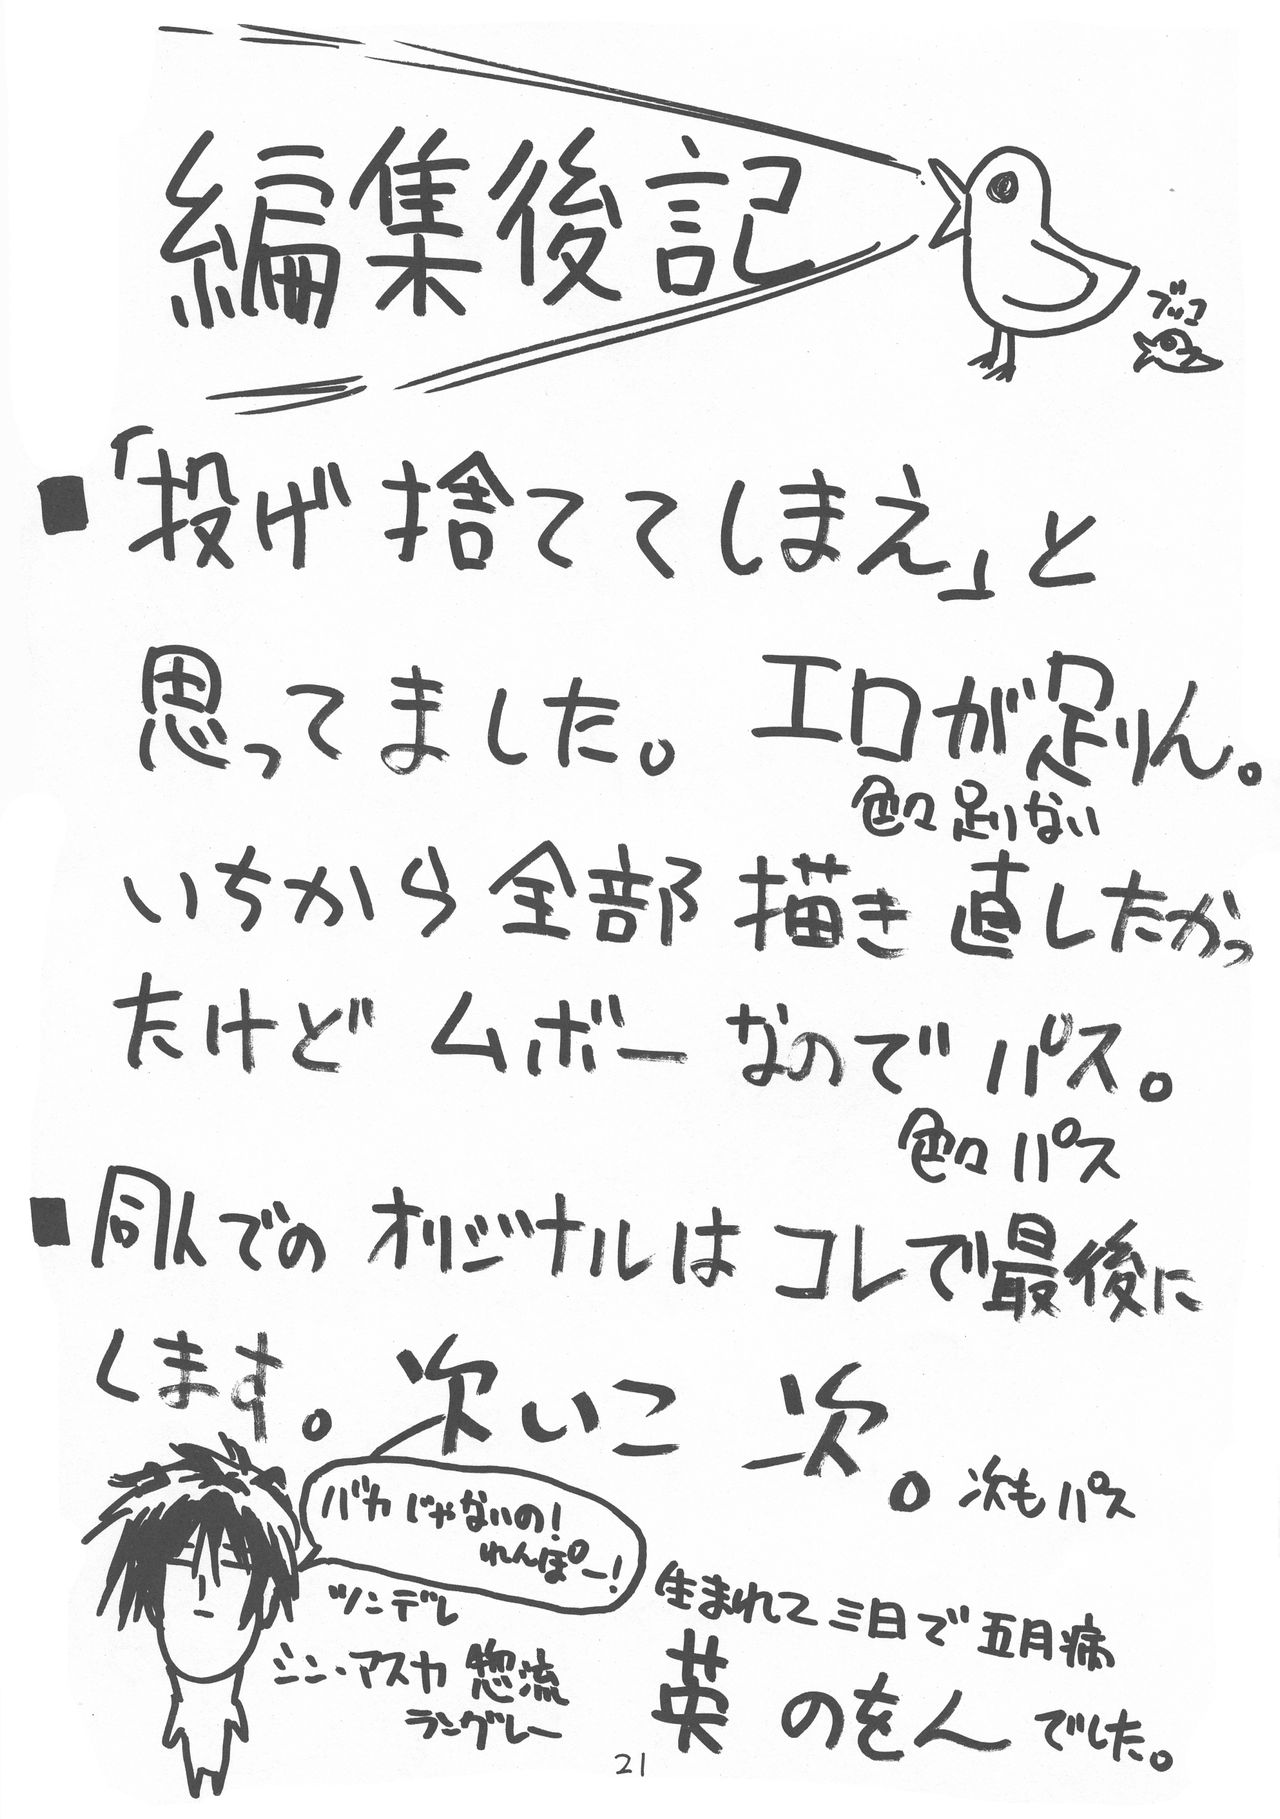 編集後記
ブッコ
■「投げ捨ててしまえ」と
思ってました。 エロが足りん。
色々足りない
いちから全部描き直したかっ
たけど ムボーなので パス。
色々パス
■同人での オリジナルは コレで最後に
します。次いこ 次。次もパス
バカじゃないの!
れんぽー!
ツンデレ
シン・アスカ 惣流
ラングレー
生まれて三日で五月病
英 のをん でした。
21